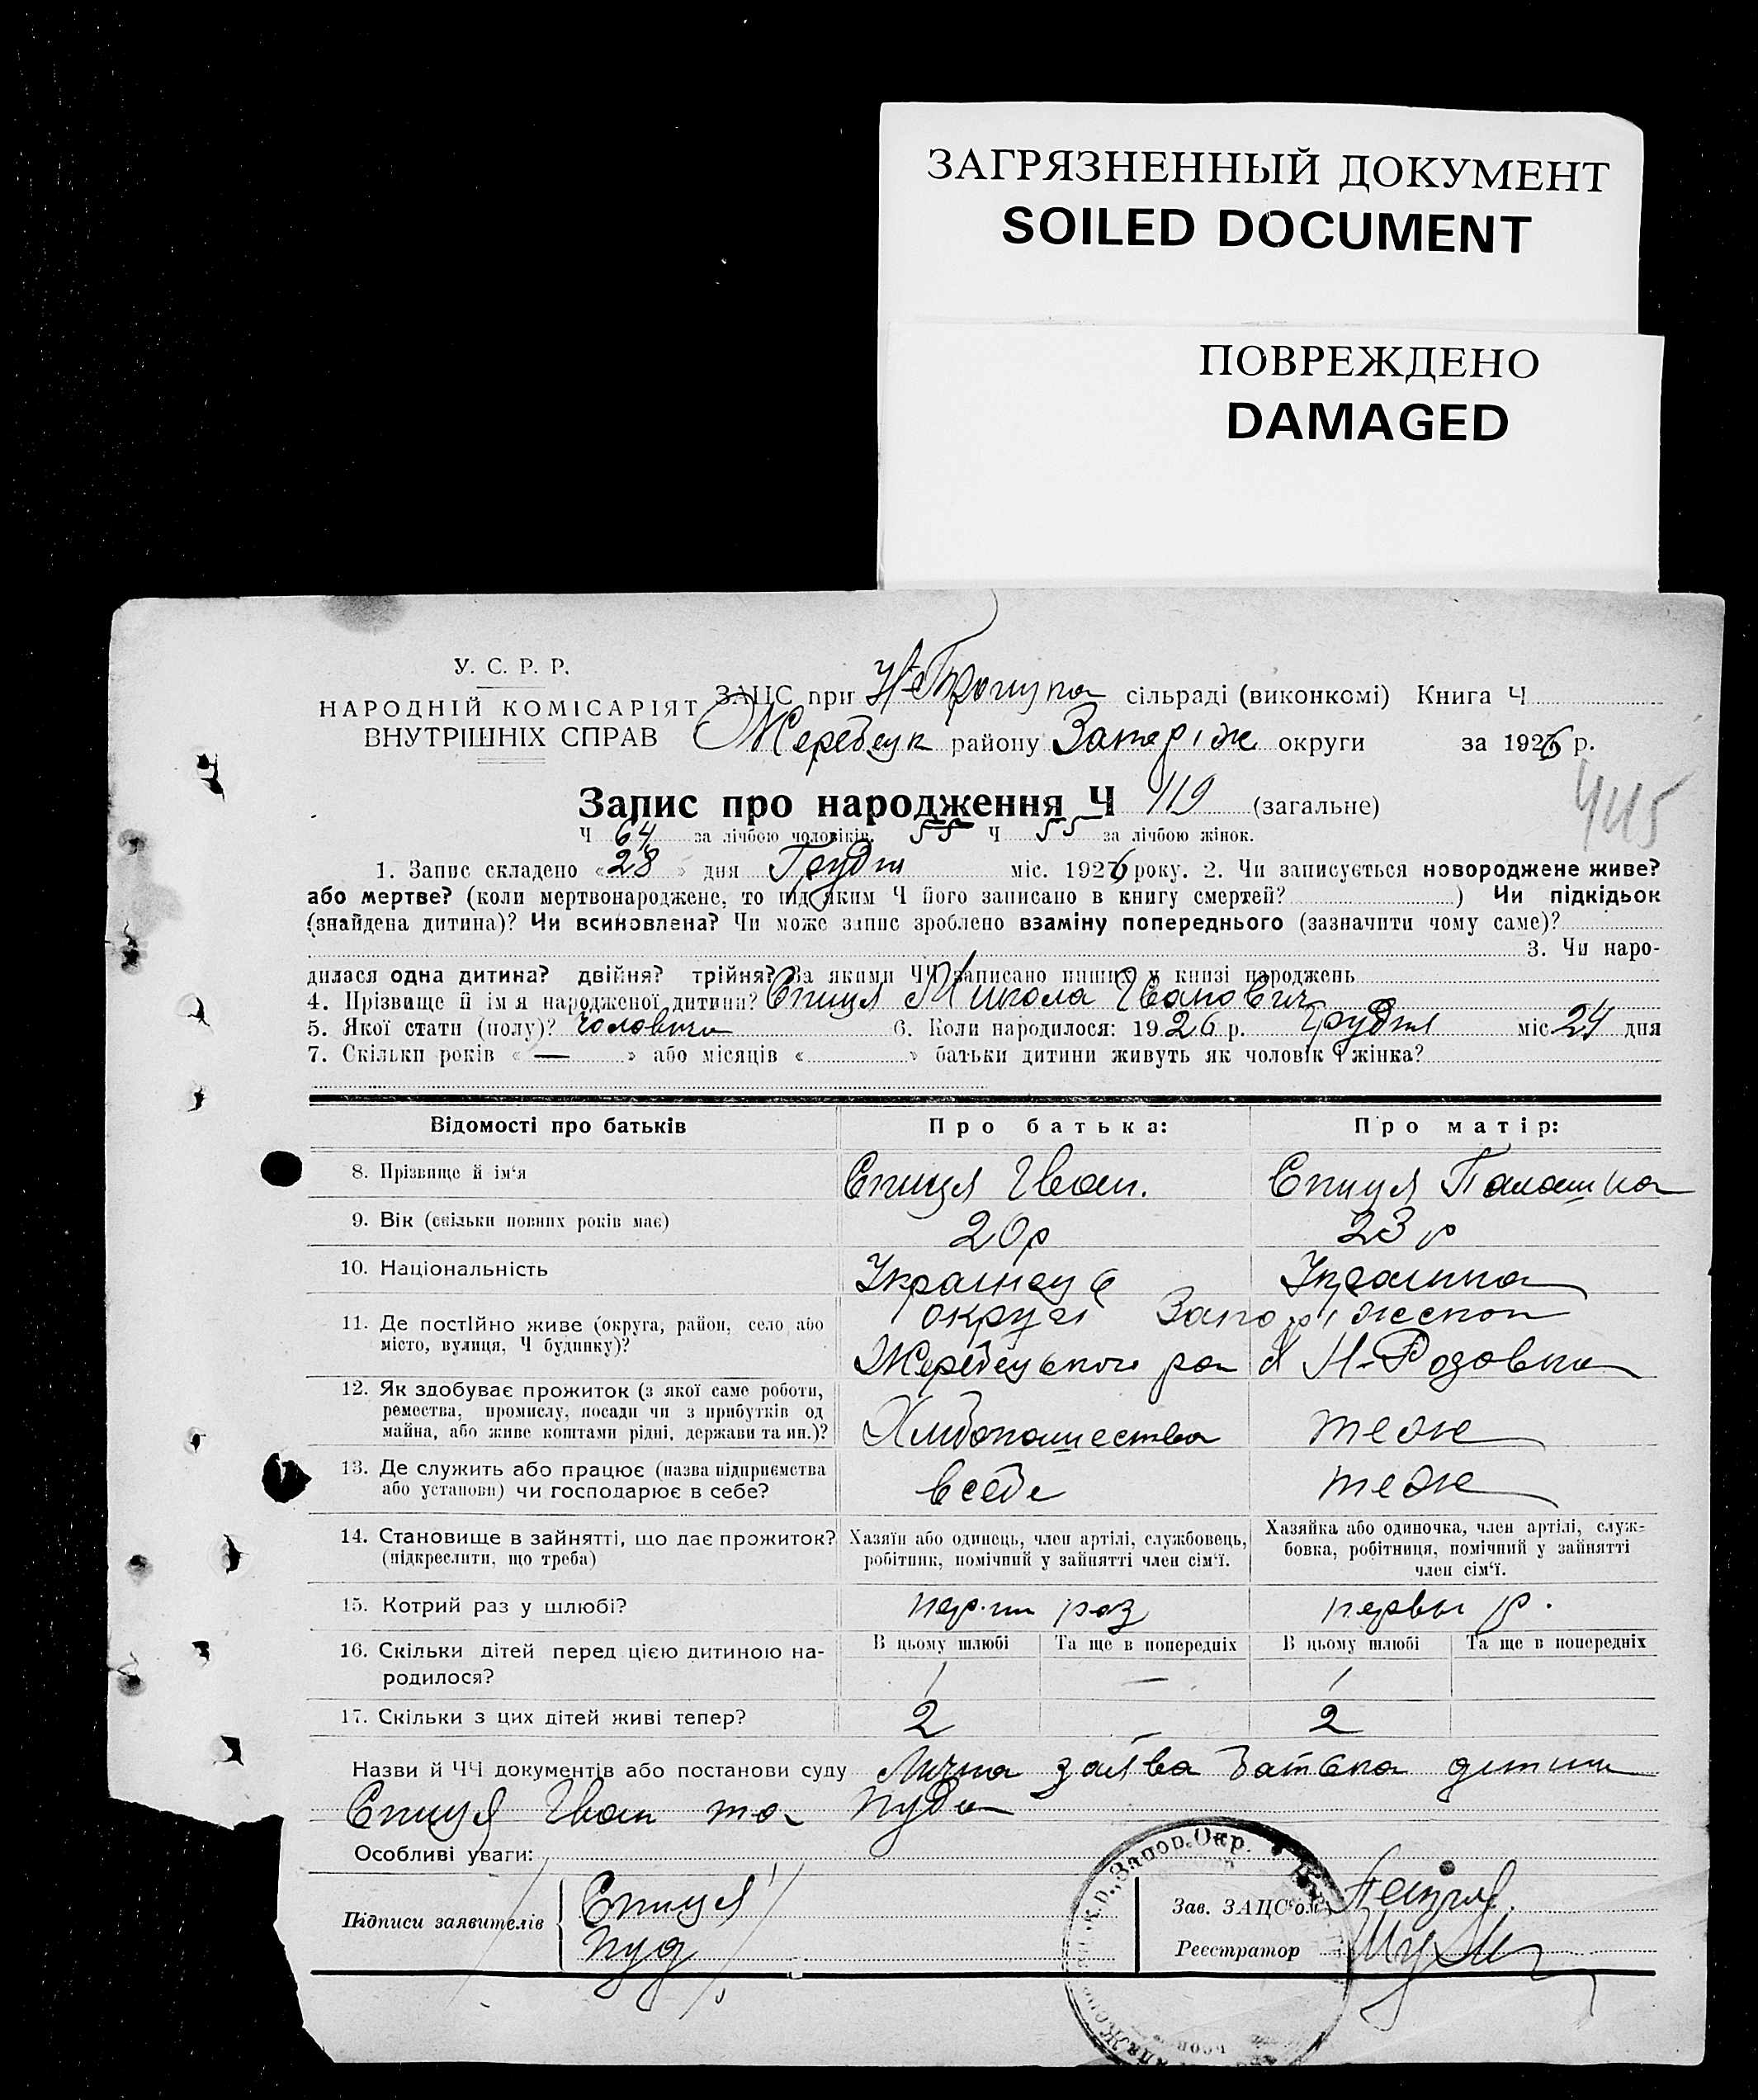 ЗАГРЯЗНЕННЫЙ ДОКУМЕНТ
SOILED DOCUMENT
ПОВРЕЖДЕНО
DAMAGED
У. С. Р. Р.
НАРОДНІЙ КОМІСАРІЯТ
ВНУТРІШНІХ СПРАВ
ЗАЦС при сільраді (виконкомі) Книга Ч
Жеребецьк району Запоріж округи за 1926 р.
445
Запис про народження Ч 119 (загальне)
Ч 64 за лічбою чоловіків. 55 Ч 55 за лічбою жінок.
1. Запис складено « 28 » дня Грудня міс. 1926 року. 2. Чи записується новороджене живе?
або мертве? (коли мертвонароджене, то під яким Ч його записано в книгу смертей? ) Чи підкідьок
(знайдена дитина)? Чи всиновлена? Чи може запис зроблено взаміну попереднього (зазначити чому саме)?
3. Чи наро-
дилася одна дитина? двійня? трійня? За якими ЧЧ записано инших у книзі народжень
4. Прізвище й ім'я народженої дитини? Спиця Микола Іванович
5. Якої стати (полу)? чоловіч 6. Коли народилося: 1926 р. Грудня міс 24 дня
7. Скільки років « — » або місяців « » батьки дитини живуть як чоловік і жінка?
Відомості про батьків Про батька: Про матір:
8. Прізвище й ім'я Спиця Іван. Спиця Палашка
9. Вік (скільки повних років має) 20 р 23 р
10. Національність Українець Українка
11. Де постійно живе (округа, район, село або округи Запоріжської
місто, вулиця, Ч будинку)? Жеребецького рай Х Н-Розовка
12. Як здобуває прожиток (з якої саме роботи,
ремества, промислу, посади чи з прибутків од
майна, або живе коштами рідні, держави та ин.)? Хлібопашество теж
13. Де служить або працює (назва підприємства
або установи) чи господарює в себе? всебе теж
14. Становище в зайнятті, що дає прожиток? Хазяїн або одинець, член артілі, службовець, Хазяйка або одиночка, член артілі, служ-
(підкреслити, що треба) робітник, помічний у зайнятті член сім'ї. бовка, робітниця, помічний у зайнятті
член сім'ї.
15. Котрий раз у шлюбі? раз первы р.
16. Скільки дітей перед цією дитиною на- В цьому шлюбі Та ще в попередніх В цьому шлюбі Та ще в попередніх
родилося? 1 — 1
17. Скільки з цих дітей живі тепер? 2 — 2
Назви й ЧЧ документів або постанови суду Лична заява батька дитини
Спиця Іван та
Особливі уваги:
Підписи заявителів Спиця
Зав. ЗАЦС'ом
Реєстратор
Запор. Окр.